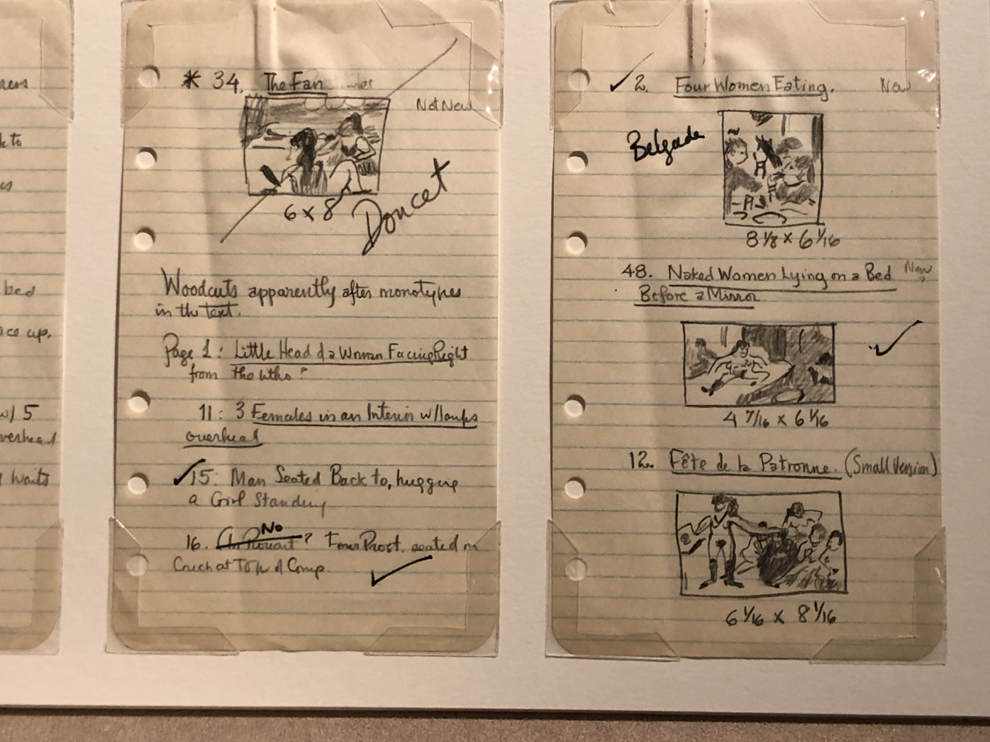 bed
ace up.
w/ 5
overhead
waits
* 34. The Fan
Not New
6 x 8
Doucet
Woodcuts apparently after monotypes
in the text.
Page 1: Little Head of a Woman Facing Right
from the
11: 3 Females in an Interior w/lamps
overhead
✓15: Man Seated Back to, hugging
a Girl Standing
No
16. ? Four Prost. seated on
Couch at Top of Comp.
✓
✓ 2. Four Women Eating. New
Belgrade
8 1/8 x 6 1/16
48. Naked Women Lying on a Bed New
?
Before a Mirror
✓
4 7/16 x 6 1/16
12. Fête de la Patronne. (Small Version)
6 1/16 x 8 1/16